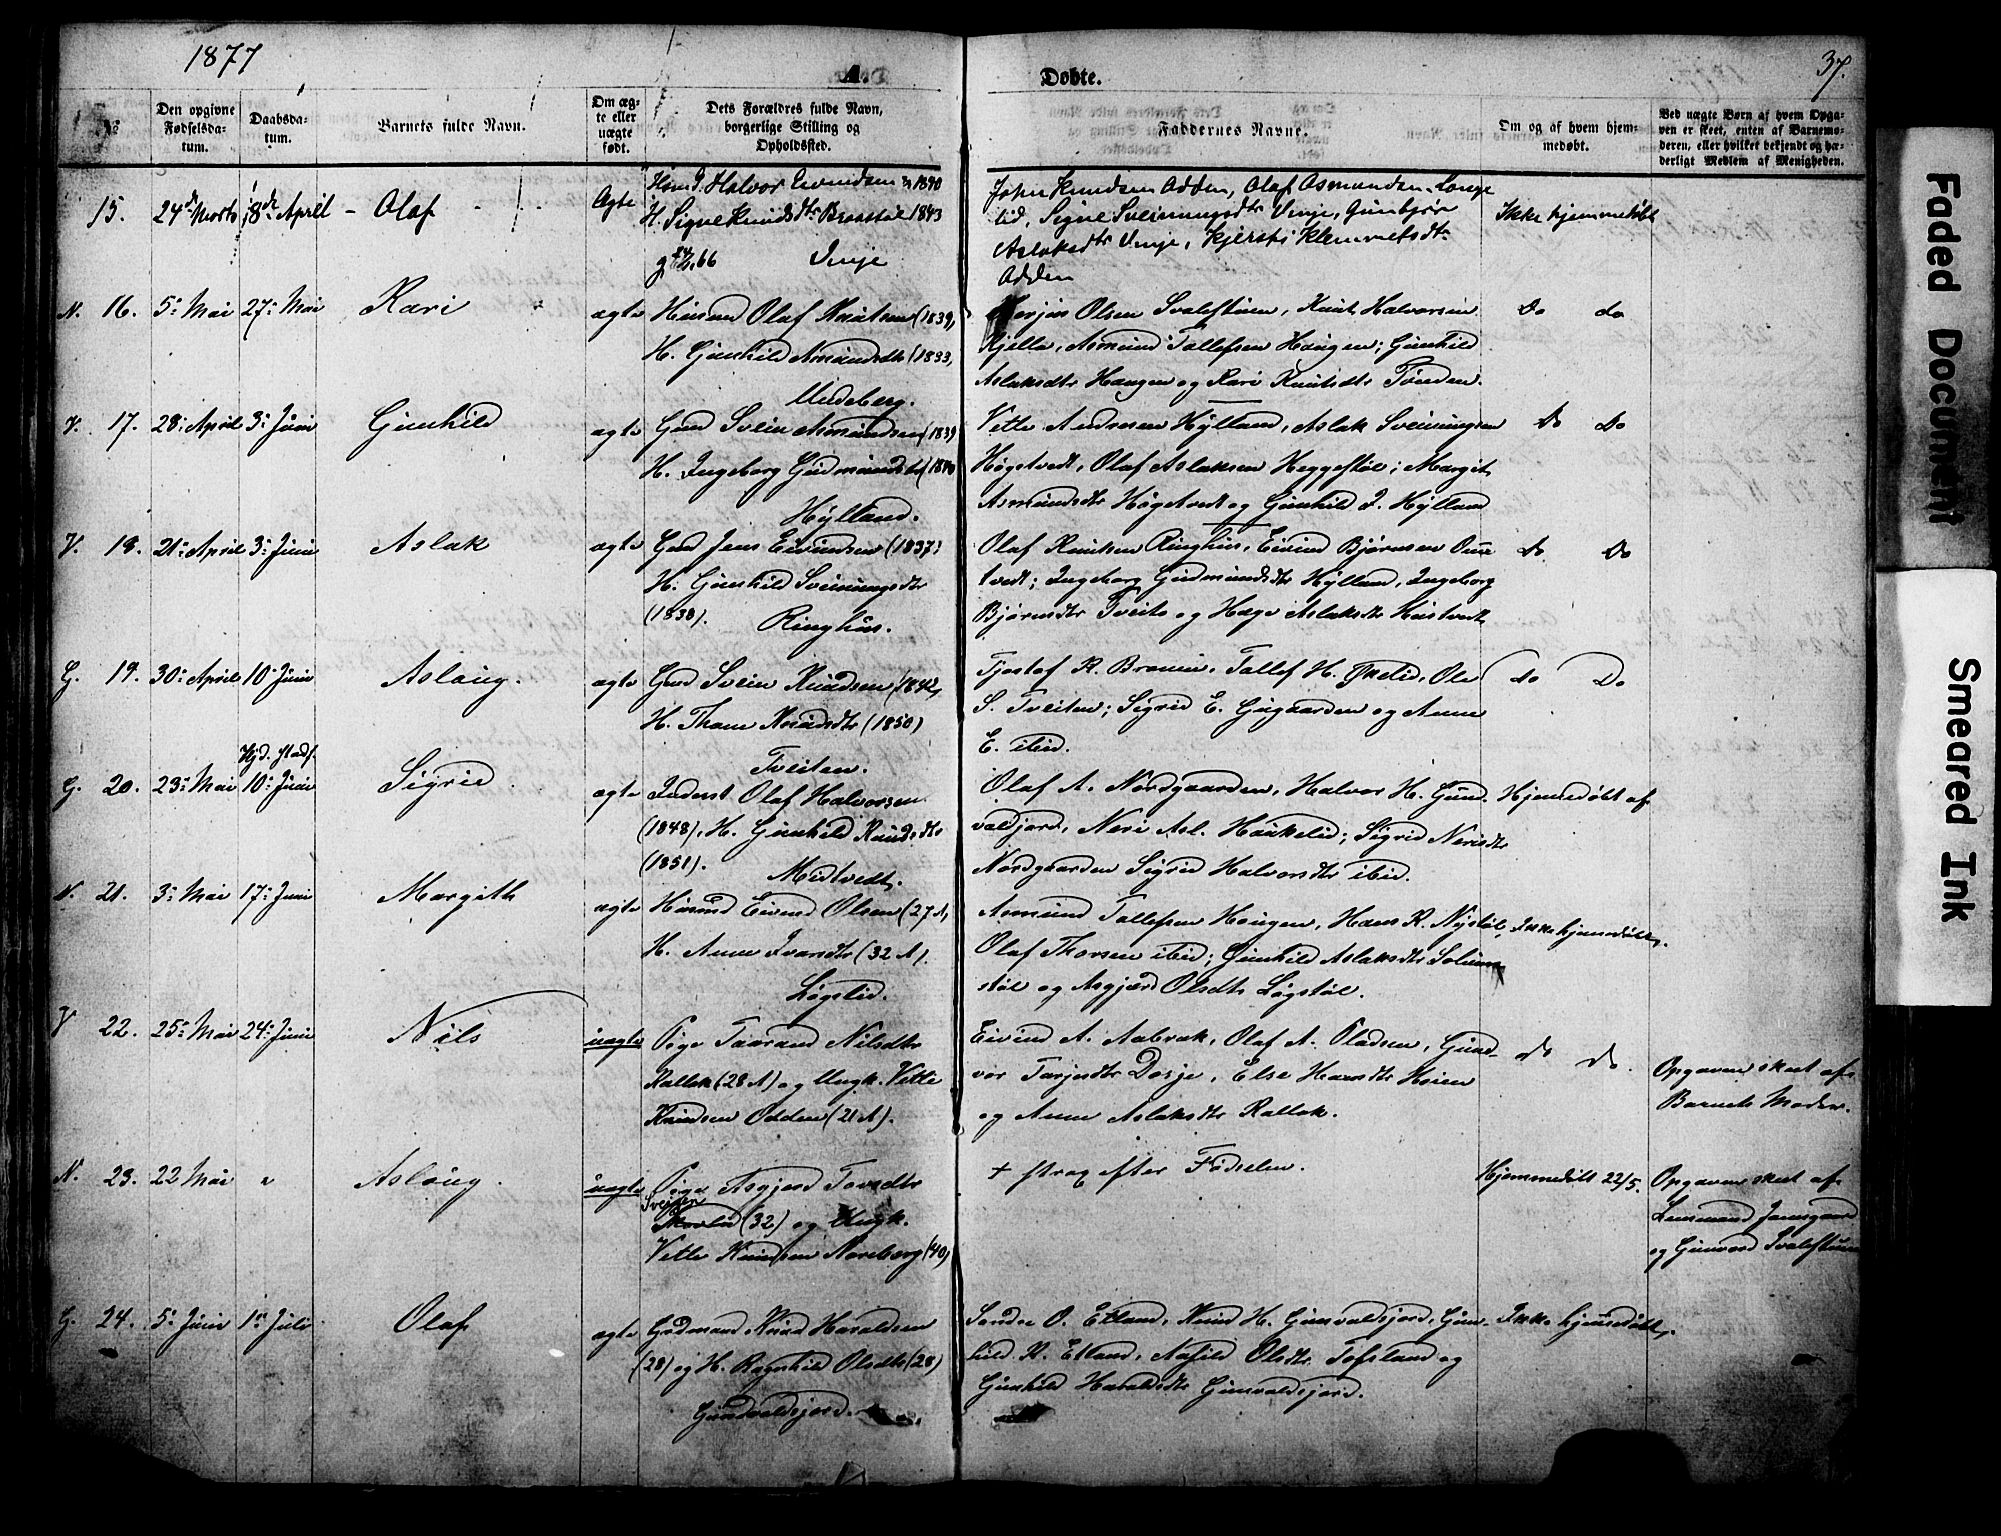 1877
A. Døbte.
37.
№
Den opgivne Fødselsdatum.
Daabsdatum.
Barnets fulde Navn.
Om ægte eller uægte født.
Dets Forældres fulde Navn, borgerlige Stilling og Opholdssted.
Faddernes Navne.
Om og af hvem hjemmedøbt.
Ved uægte Børn af hvem Opgaven er skeet, enten af Barnemoderen, eller hvilket bekjendt og hæderligt Medlem af Menigheden.
15. 24de Marts 8de April - Olaf
Ægte
Halvor Eivindsen 1840
H. Signe Knudsdtr 1843
66 Vinje
John Knudsen Odden, Olaf Osmundsen Longe
lid, Signe Sveinungsdtr Vinje, Gunbjør
Aslaksdtr Vinje, Kjersti Klemmetsdtr
Odden
Ikke hjemmedøbt
N. 16. 5. Mai 27. Mai Kari
ægte
Husmd Olaf Knutsen (1839)
H. Gunhild Asmundsdtr (1833)
Midtberg.
Olsen Svalestuen, Knut Halvorsen
Kjelle, Asmund Tollefsen Haugen; Gunhild
Aslaksdtr Haugen og Kari Knutsdtr Tønden.
Do do
V. 17. 28. April 3. Juni Gunhild
ægte
Gmd Svein Asmundsen (1839
H. Ingeborg Gudmundsdtr (1840
Hylland.
Vetle Andresen Hylland, Aslak Sveinungsen
Høgetvedt, Olaf Aslaksen Heggestøl; Margit
Asmundsdtr Høgetvedt og Gunhild J. Hylland
Do Do
V. 18. 21. April 3. Juni Aslak
ægte
Gmd Jens Eivindsen (1837)
H. Gunhild Sveinungsdtr
(1838). Ringhus.
Olaf Knutsen Ringhus, Eivind Bjørnsen
tvedt; Ingeborg Gudmundsdtr Hylland, Ingeborg
Bjørnsdtr Tveito og Hæge Aslaksdtr
Do Do
G. 19. 30. April 10. Juni Aslaug.
ægte
Gmd Svein Knudsen (1842)
H. Thone Knudsdtr (1850)
Tveiten.
Tjostof K. Tollef H. Ole
S. Tveiten; Sigrid E. Gugaarden og Anne
E. ibid.
Do Do
Hjd. stadf.
G. 20. 23. Mai 10. Juni Sigrid
ægte
Inderst Olaf Halvorsen
(1848), H. Gunhild Knudsdtr
(1851). Midtvedt.
Olaf A. Nordgaarden, Halvor H. Gund
valdjord, Neri Asl. Haukelid; Sigrid Nerisdtr
Nordgaarden Sigrid Halvorsdtr ibid.
Hjemmedøbt af
N. 21. 3. Mai 17. Juni Margith
ægte
Husmd Eivind Olsen (27 A)
H. Anne Ivarsdtr (32 A).
Løgslid.
Asmund Tollefsen Haugen, Hans K. Nystøl,
Olaf Thorsen ibid; Gunhild Aslaksdtr
støl og Asgjærd Olsdtr Løgstøl.
Ikke hjemmedøbt.
V 22. 25. Mai 24. Juni Nils
uægte
Pige Taarand Nilsdtr
Kallok (28 A) og Ungk. Vetle
Knudsen Odden (21 A).
Eivind A. Aabrak, Olaf A. Gund-
vor Tarjeisdtr Dosje, Else Hansdtr
og Anne Aslaksdtr Kallok.
do do.
Opgaven skeet af
Barnets Moder.
N. 23. 22 Mai " Aslaug.
uægte
Pige Asgjerd Tovsdtr
(32) og Ungk.
Vetle Knudsen Norsberg (40)
+ strax efter Fødselen.
Hjemmedøbt 22/5.
Opgaven skeet af
Lensmand
og Gunvord Svalestuen
G. 24. 5. Juni 1. Juli Olaf
ægte
Gbdmand Knud Haraldsen
(28) og H. Ragnhild Olsdtr (28)
Gundvaldsjord.
Sondre O. Edland, Knud H. Gunvaldsjord, Gun
hild K. Edland, Olsdtr Tofsland og
Gunhild Haraldsdtr Gunvaldsjord.
Ikke hjemmedøbt.
Faded Document
Smeared Ink